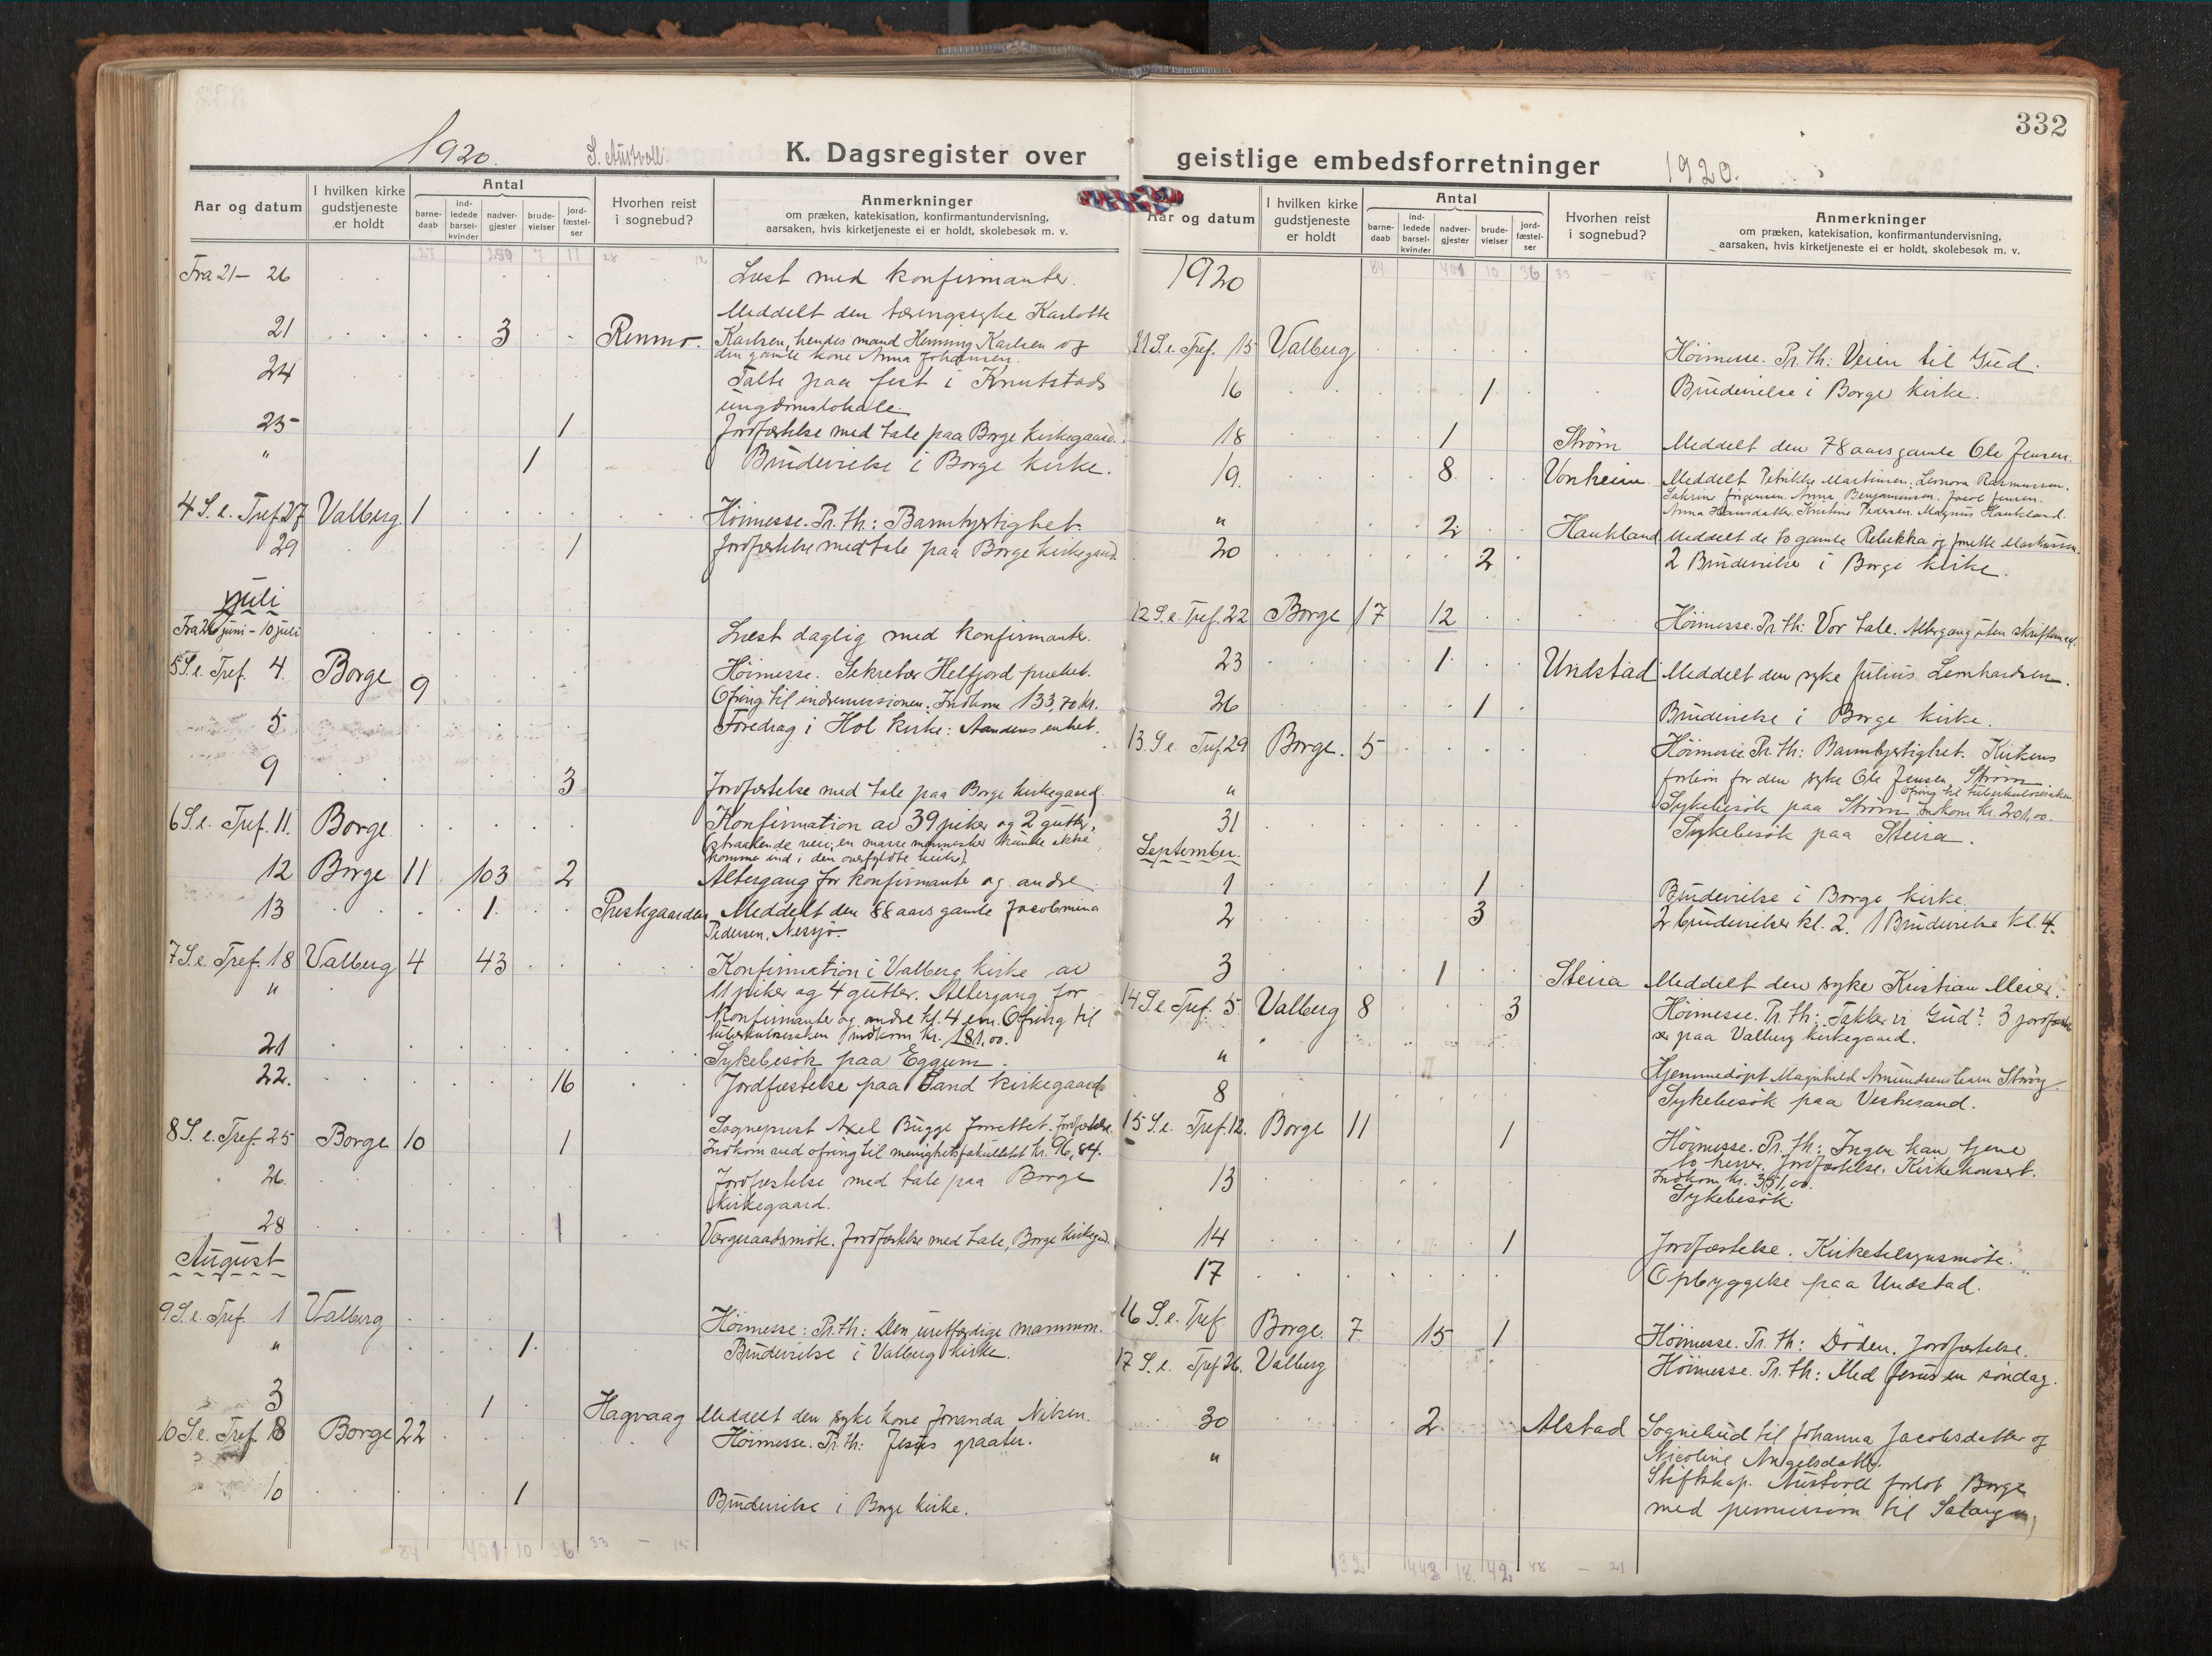 1920.
S. Austvoll.
K. Dagsregister over
Aar og datum
I hvilken kirke gudstjeneste er holdt
Antal
barne-daab
ind-ledede barsel-kvinder
nadver-gjester
brude-vielser
jord-fæstel-ser
Hvorhen reist i sognebud?
Anmerkninger
om præken, katekisation, konfirmantundervisning,
aarsaken, hvis kirketjeneste ei er holdt, skolebesøk m. v.
Fra 21 - 26 Læst med konfirmanter.
Meddelt den tæringssyke Karlotte
21 3 Renmo. Karlsen, hendes mand Henning Karlsen og
den gamle kone Anna Johansen.
24 Talte paa fest i Knutstads
ungdomslokale.
25 1 Jordfæstelse med tale paa Borge kirkegaard.
" 1 Brudevielse i Borge kirke.
4 S. e. Tref. 27 Valberg. 1 Høimesse. Pr. th: Barmhjertighet.
29 1 Jordfæstelse med tale paa Borge kirkegaard.
Juli
Fra 26 juni - 10 juli Læst daglig med konfirmanter.
5 S. e. Tref. 4. Borge 9 Høimesse. Sekretær Helfjord præket.
Ofring til indremissionen. Indkom 133,70 kr.
5 Foredrag i Hol kirke: Aandens enhet.
9 3 Jordfæstelse med tale paa Borge kirkegaard.
6 S. e. Tref. 11. Borge Konfirmation av 39 piker og 2 gutter,
(straalende veir; en masse mennesker kunde ikke
komme ind i den overfyldte kirke).
12 Borge 11 103 2 Altergang for konfirmanter og andre.
13 1. Prestegaarden Meddelt den 88 aars gamle Jacobmina
Pedersen, Nessjø.
7 S. e. Tref. 18 Valberg 4 43 Konfirmation i Valberg kirke av
" 11 piker og 4 gutter. Altergang for
konfirmanter og andre kl. 4 em. Ofring til
tuberkulosesaken indkom kr. 181,00.
21 Sykebesøk paa Eggum
22. 16 Jordfæstelse paa Sand kirkegaard
8 S. e. Tref. 25 Borge 10 1 Sogneprest Axel Bugge forrettet. Jordfæstelse.
Indkom ved ofring til menighetsfakultetet kr. 96,84.
26. Jordfæstelse med tale paa Borge
kirkegaard.
28 1 Værgeraadsmøte. Jordfæstelse med tale, Borge kirkegd.
August
9 S. e. Tref. 1 Valberg Høimesse: Pr. th: Den uretfærdige mammon.
" 1. Brudevielse i Valberg kirke.
3 1 Hagvaag Meddelt den syke kone Joranda Nilsen.
10 S. e. Tref. 8 Borge 22 Høimesse. Pr. th: Jesus graater.
10 1 Brudevielse i Borge kirke.
84 401 10 36 33 - 15
332
geistlige embedsforretninger
1920.
Aar og datum
I hvilken kirke gudstjeneste er holdt
Antal
barne-daab
ind-ledede barsel-kvinder
nadver-gjester
brude-vielser
jord-fæstel-ser
Hvorhen reist i sognebud?
Anmerkninger
om præken, katekisation, konfirmantundervisning,
aarsaken, hvis kirketjeneste ei er holdt, skolebesøk m. v.
84. 401 10 36 33 - 15
1920
11 S. e. Tref. 15 Valberg Høimesse. Pr. th: Veien til Gud.
16 1 Brudevielse i Borge kirke.
18 1 Strøm Meddelt den 78 aars gamle Ole Jensen.
19. 8 Vonheim Meddelt Petrikke Martinsen. Leonora Rasmussen.
Jørgensen. Anna Benjaminsen. Jacob Jensen.
Anna Hansdatter. Kristine Pedersen. Magnus Haukland.
" 2 Haukland Meddelt de to gamle Rebekka og Markussen.
20 2 2 Brudevielser i Borge kirke.
12 S. e. Tref. 22 Borge 17 12 Høimesse. Pr. th: Vor tale. Altergang uten skriftemaal.
23 1 Undstad Meddelt den syke Julius Leonhardsen.
26 1 Brudevielse i Borge kirke.
13 S. e. Tref. 29 Borge. 5 Høimesse Pr. th: Barmhjertighet. Kirkens
forbøn for den syke Ole Jensen, Strøm
Ofring til tuberkulosesaken
" Sykebesøk paa Strøm. Indkom kr. 201,00.
31 Sykebesøk paa Steira.
September.
1 1 Brudevielse i Borge kirke.
2 3 2 brudevielser kl. 2. 1 Brudevielse kl. 4.
3 1 Steira Meddelt den syke Kristian Meier.
14 S. e. Tref. 5 Valberg 8 3 Høimesse. Pr. th: Takker vi Gud? 3 jordfæstel-
ser paa Valberg kirkegaard.
" Hjemmedøpt Magnhild Amundsens barn
8 Sykebesøk paa Vestresand.
15 S. e. Tref. 12. Borge 11 1 Høimesse. Pr. th: Ingen kan tjene
to herrer. Jordfæstelse. Kirkekonsert.
Indkom kr. 351,00.
13 Sykebesøk.
14 1 Jordfæstelse. Kirketilsynsmøte.
17 Opbyggelse paa Undstad.
16 S. e. Tref. Borge. 7 15 1 Høimesse. Pr. th: Døden. Jordfæstelse.
17 S. e. Tref. 26. Valberg Høimesse. Pr. th: Med Jesus en søndag.
30 2 Alstad Sognebud til Johanna Jacobsdatter og
Nicoline Angelsdatter.
" Stiftskap. Austvoll forlot Borge
med permission til Salangen,
132 443 18 42 48 - 21